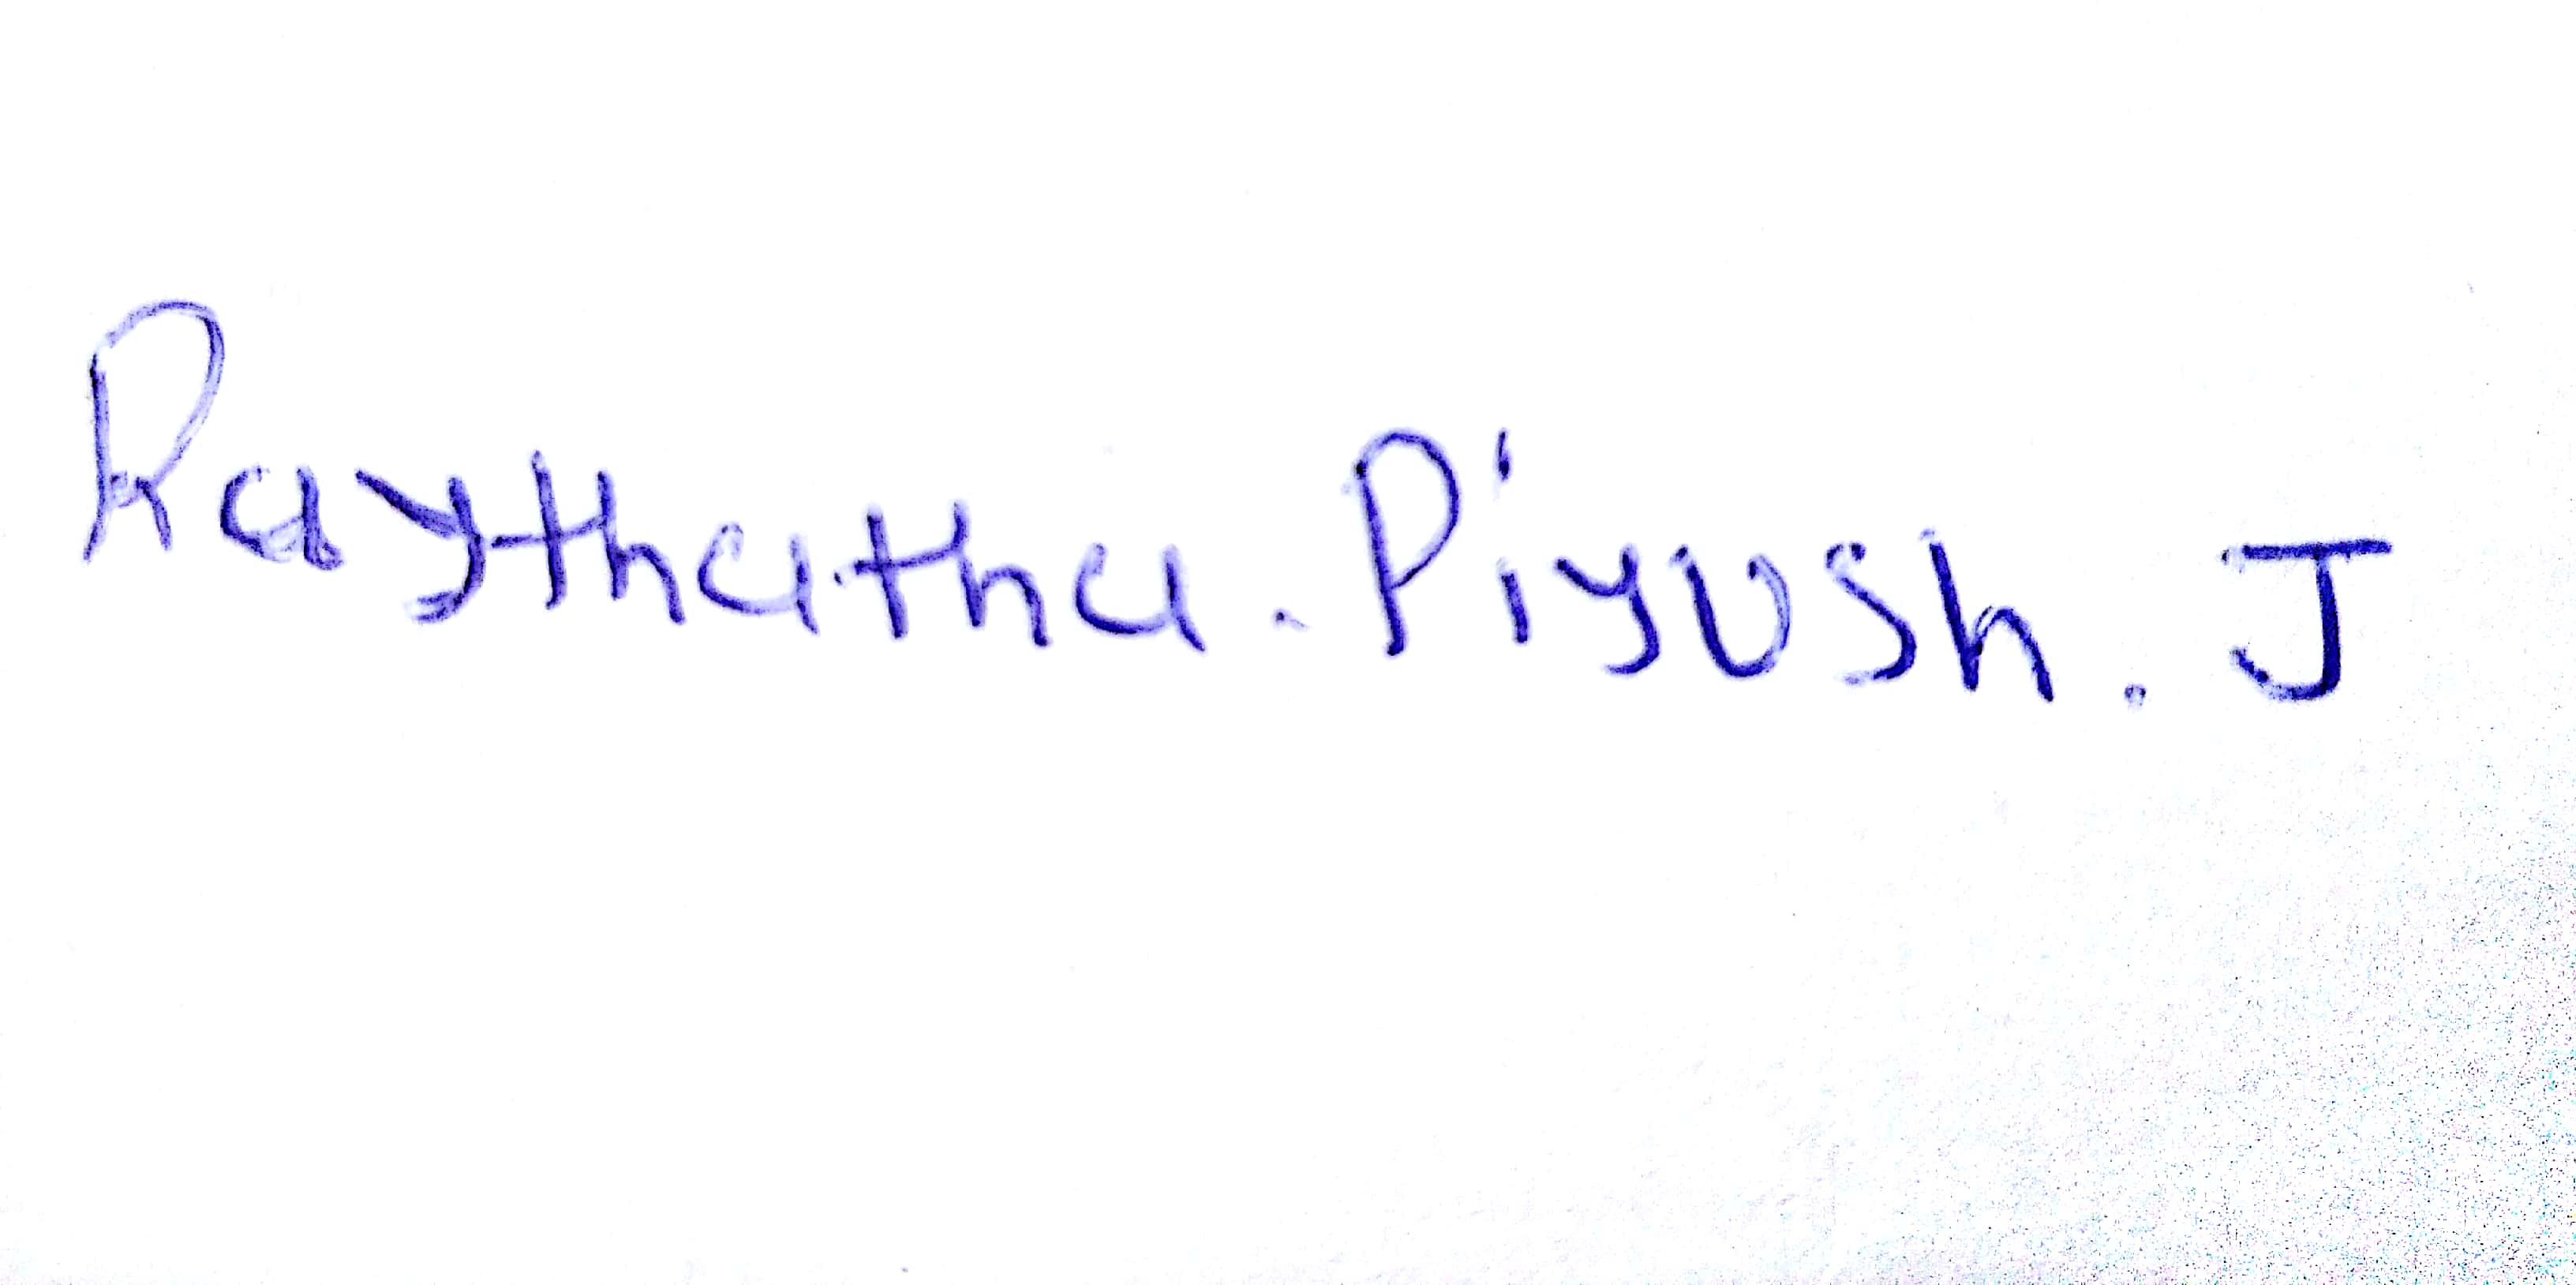 Raythatha. Piyush. J